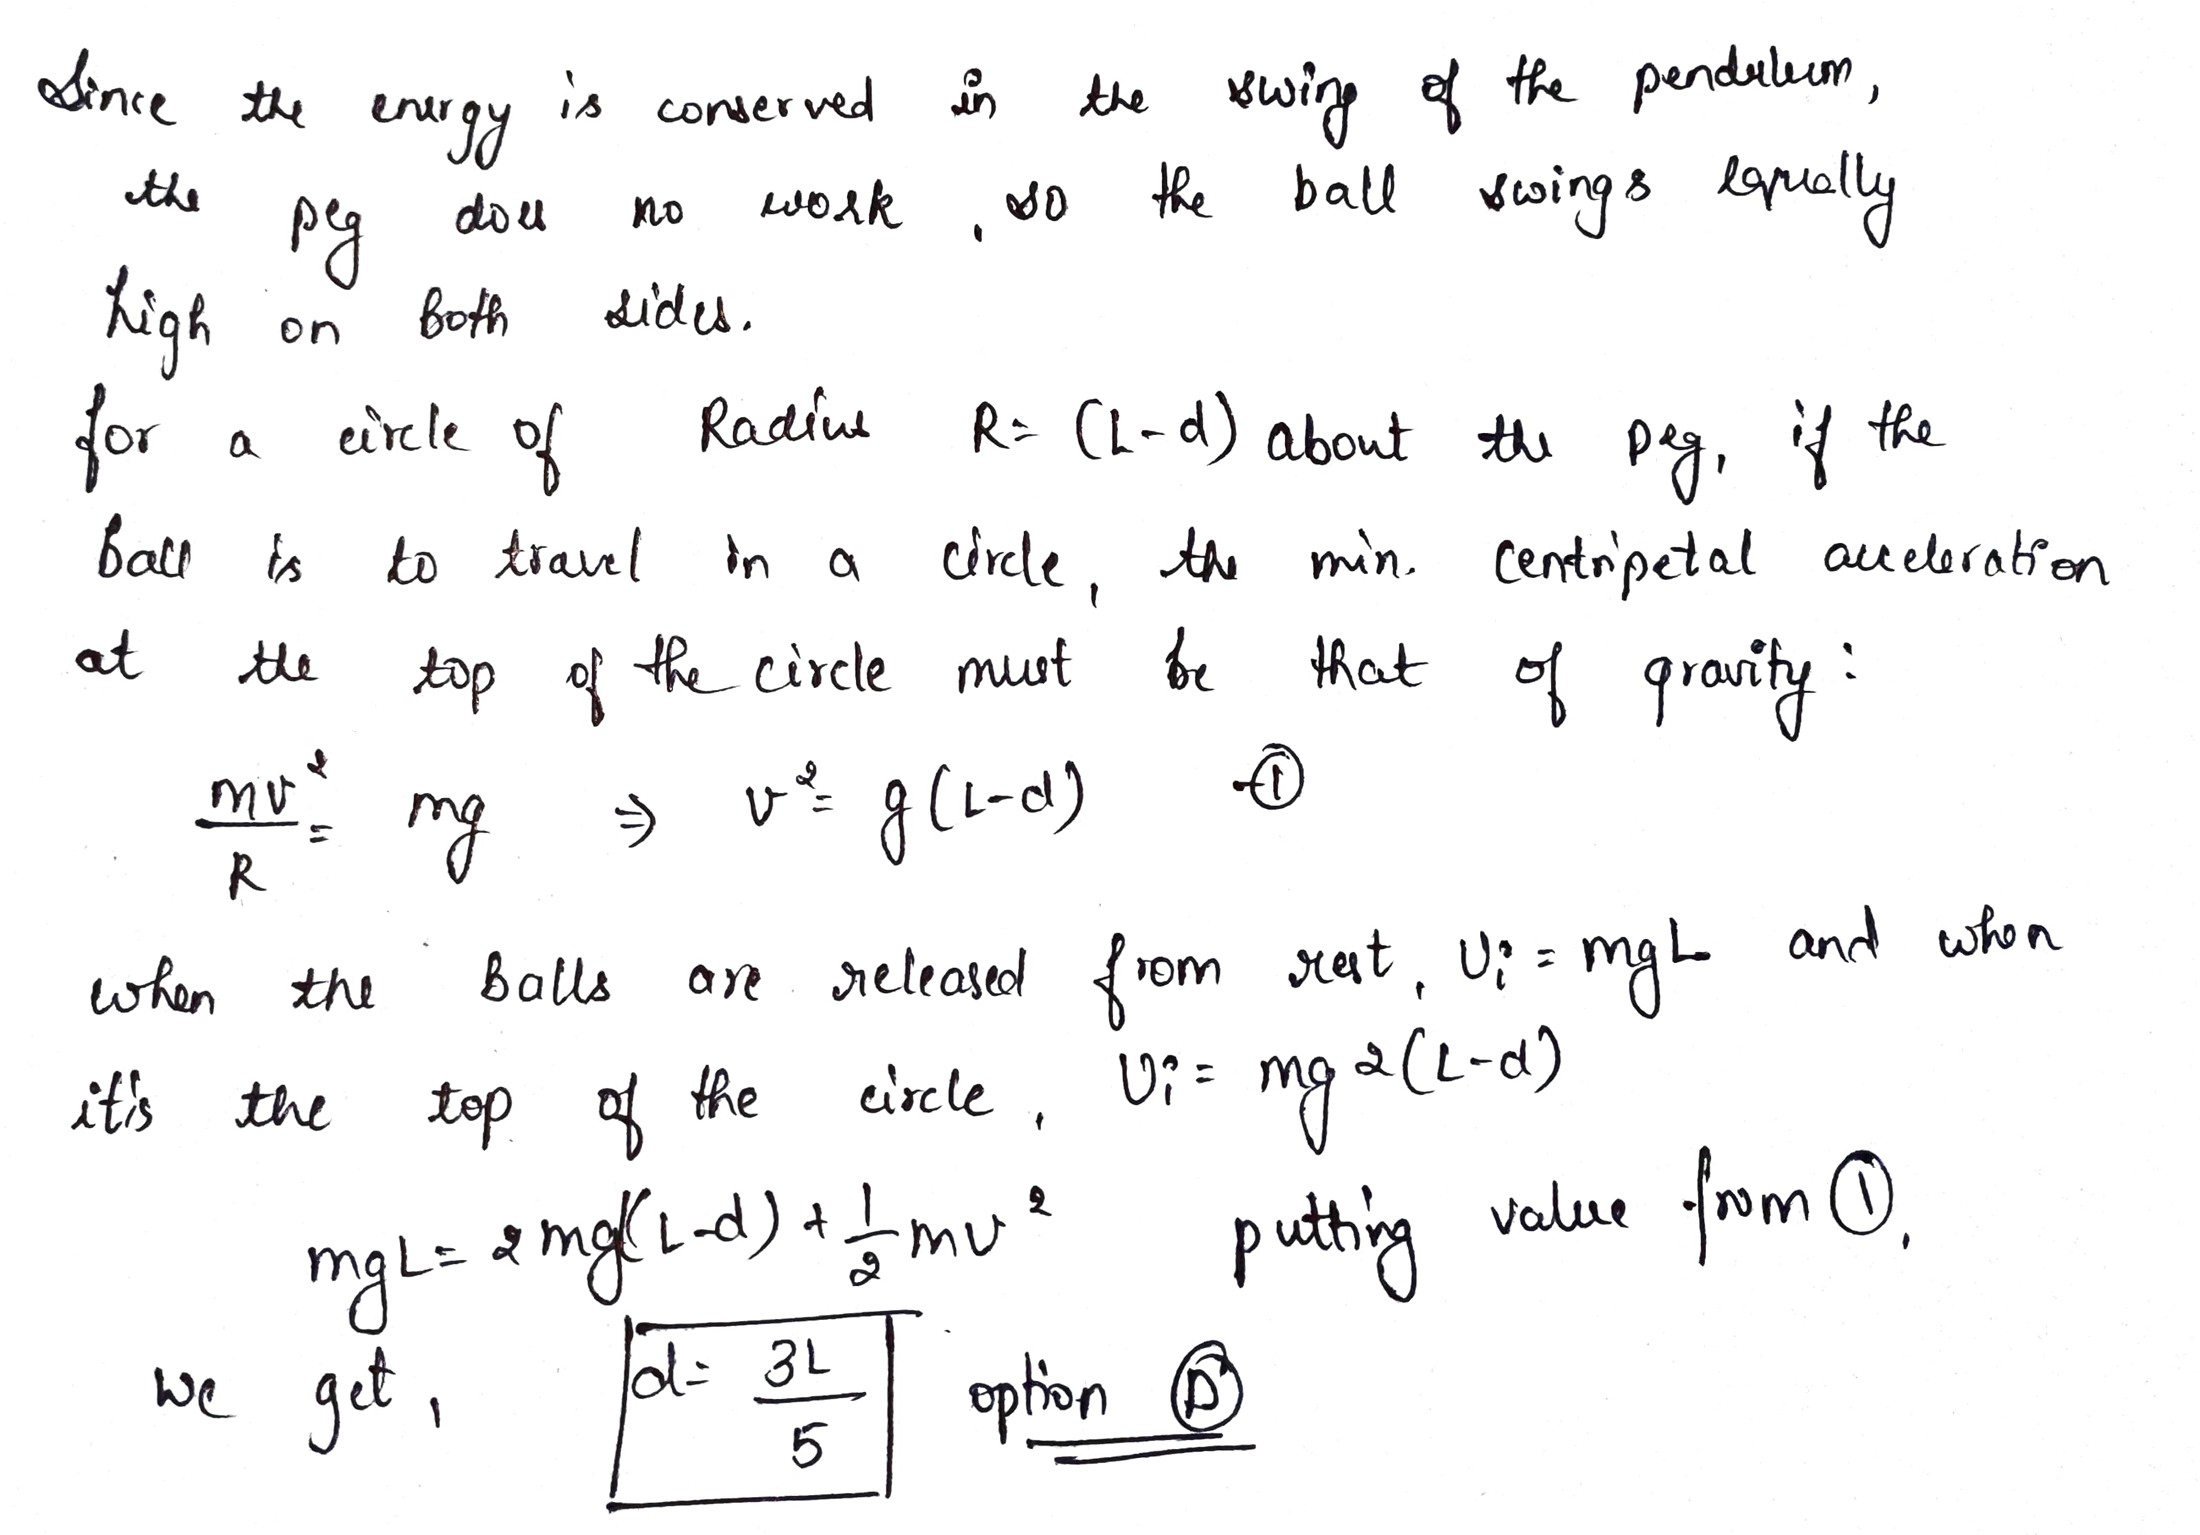 Since the energy is conserved in the swing of the pendulum,
the peg does no work, so the ball swings equally
high on both sides.
for a circle of Radius R = (L-d) about the peg, if the
ball is to travel in a circle, the min. centripetal acceleration
at the top of the circle must be that of gravity:
mv²/R = mg ⇒ v² = g(L-d) -①
when the Balls are released from rest, Ui = mgL and when
it's the top of the circle, Ui = mg 2(L-d)
mgL = 2mg(L-d) + 1/2 mv² putting value from ①,
we get, d = 3L/5 option Ⓓ